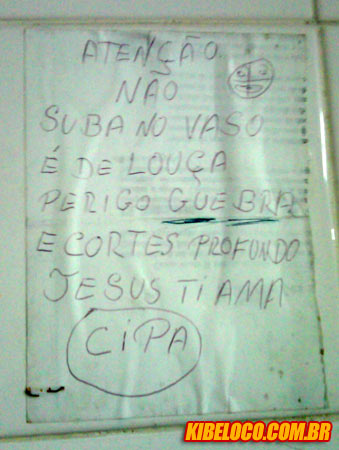 ATENÇÃO
NÃO
SUBA NO VASO
É DE LOUÇA
PERIGO GUEBRA
E CORTES PROFUNDO
JESUS TI AMA
CIPA
KIBELOCO.COM.BR